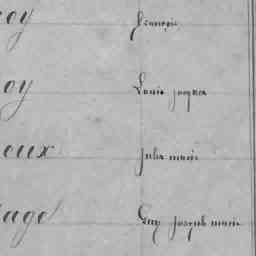 oy François
oy Louis Jacques
eux Jules Marie
age Guy Joseph Marie